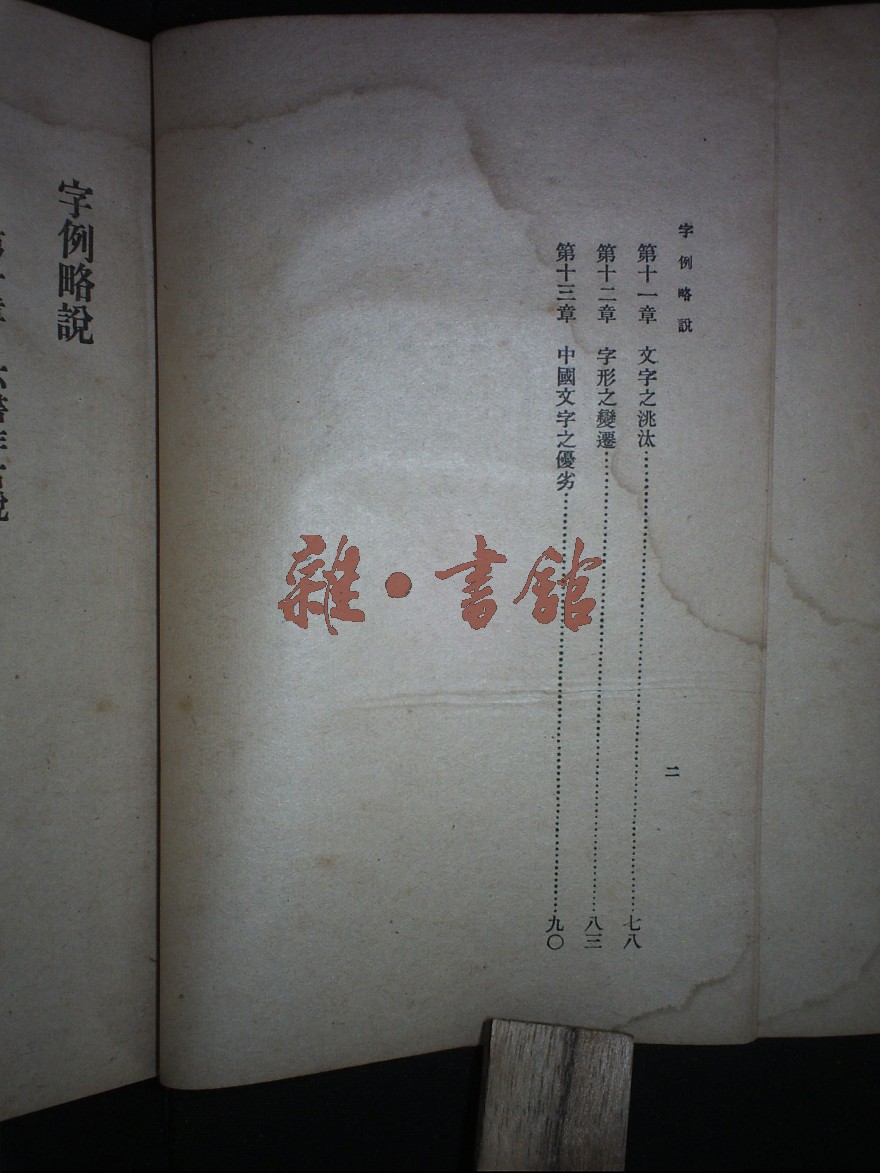 字例略說
二
第十一章 文字之洮汰……七八
第十二章 字形之變遷……八三
第十三章 中國文字之優劣……九〇
雜·書館
字例略說